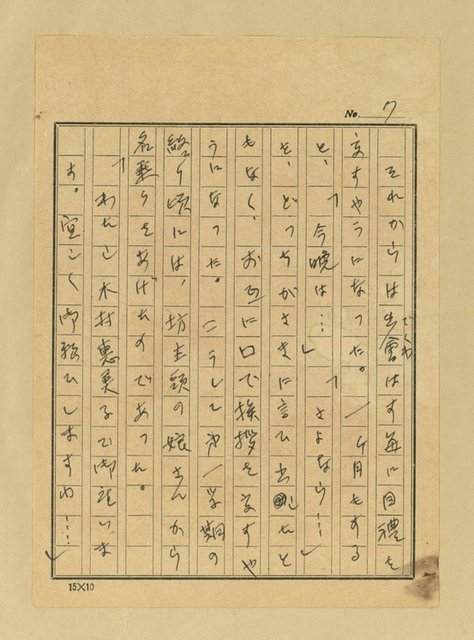 No. 7
それから は出會はす毎に目禮を
でくわ
交すやうになった。一ケ月もする
と、「今晩は…」「さよなら…」
と、どっちがさきに言ひ出したと
もなく、お互に口で挨拶を交すや
うになった。こうして第一学期の
終り頃には、坊主頭の娘さんから
名乗りをあげたのであった。
「わたし木村惠美子で御座いま
す。宜しく御願ひしますわ…」
15×10